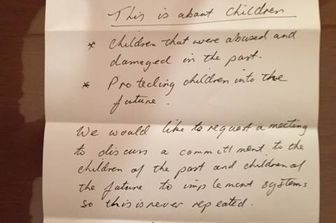 This is about Children
* Children that were abused and
damaged in the past.
* Protecting children into the
future.
We would like to request a meeting
to discuss a committment to the
children of the past and children of
the future to implement systems
so this is never repeated.